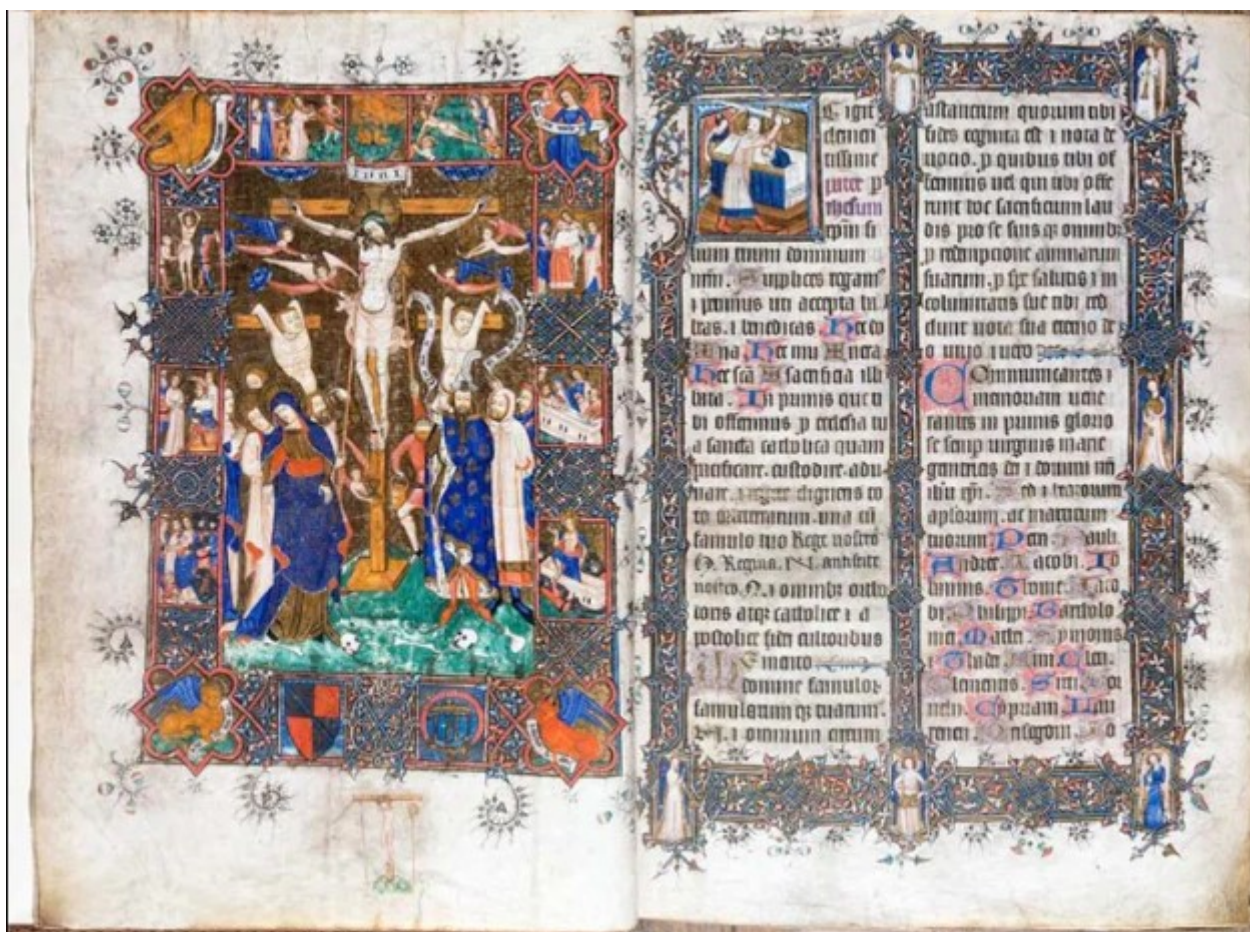 INRI
E igit
clemen
tissime
pater p
ihesum
xpm fi
lium tuum dominum
nrm. Supplices rogam
i petimus uti accepta ha
beas. i benedicas Hec do
na Hec mu nera
Hec scā sacrificia illi
bata. In primis que ti
bi offerimus p ecclesia tu
a sancta catholica quam
pacificare. custodire. adu
nare. i regere digneris to
to orbe terrarum. una cū
famulo tuo Rege nostro
N. Regina. N. antistite
nostro N. i omnibz ortho
doxis atqz catholice i a
postolice fidei cultoribus
Memento
domine famulor
famularum qz tuarum.
N. i omnium circum
astancium quorum tibi
fides cognita est i nota de
uocio. p quibus tibi of
ferimus uel qui tibi offe
runt hoc sacrificium lau
dis pro se suis qz omnibz
p redempcione animarum
suarum. p spe salutis i in
columitatis sue tibi red
dunt uota sua eterno de
o uiuo i uero
Communicantes i
memoriam uene
rantes in primis glorio
se semp uirginis marie
genitricis dei i domini nri
ihu xpi. Sed i beatorum
aplorum. ac martirum
tuorum Petri Pauli
Andree. Jacobi. Jo
hannis Thome Jaco
bi. Philippi. Bartholo
mei. Mathei. Symonis
i Thadei. Lini. Cleti.
Clementis. Sixti. Cor
nelii. Cipriani. Lau
rencii. Grisogoni. Jo